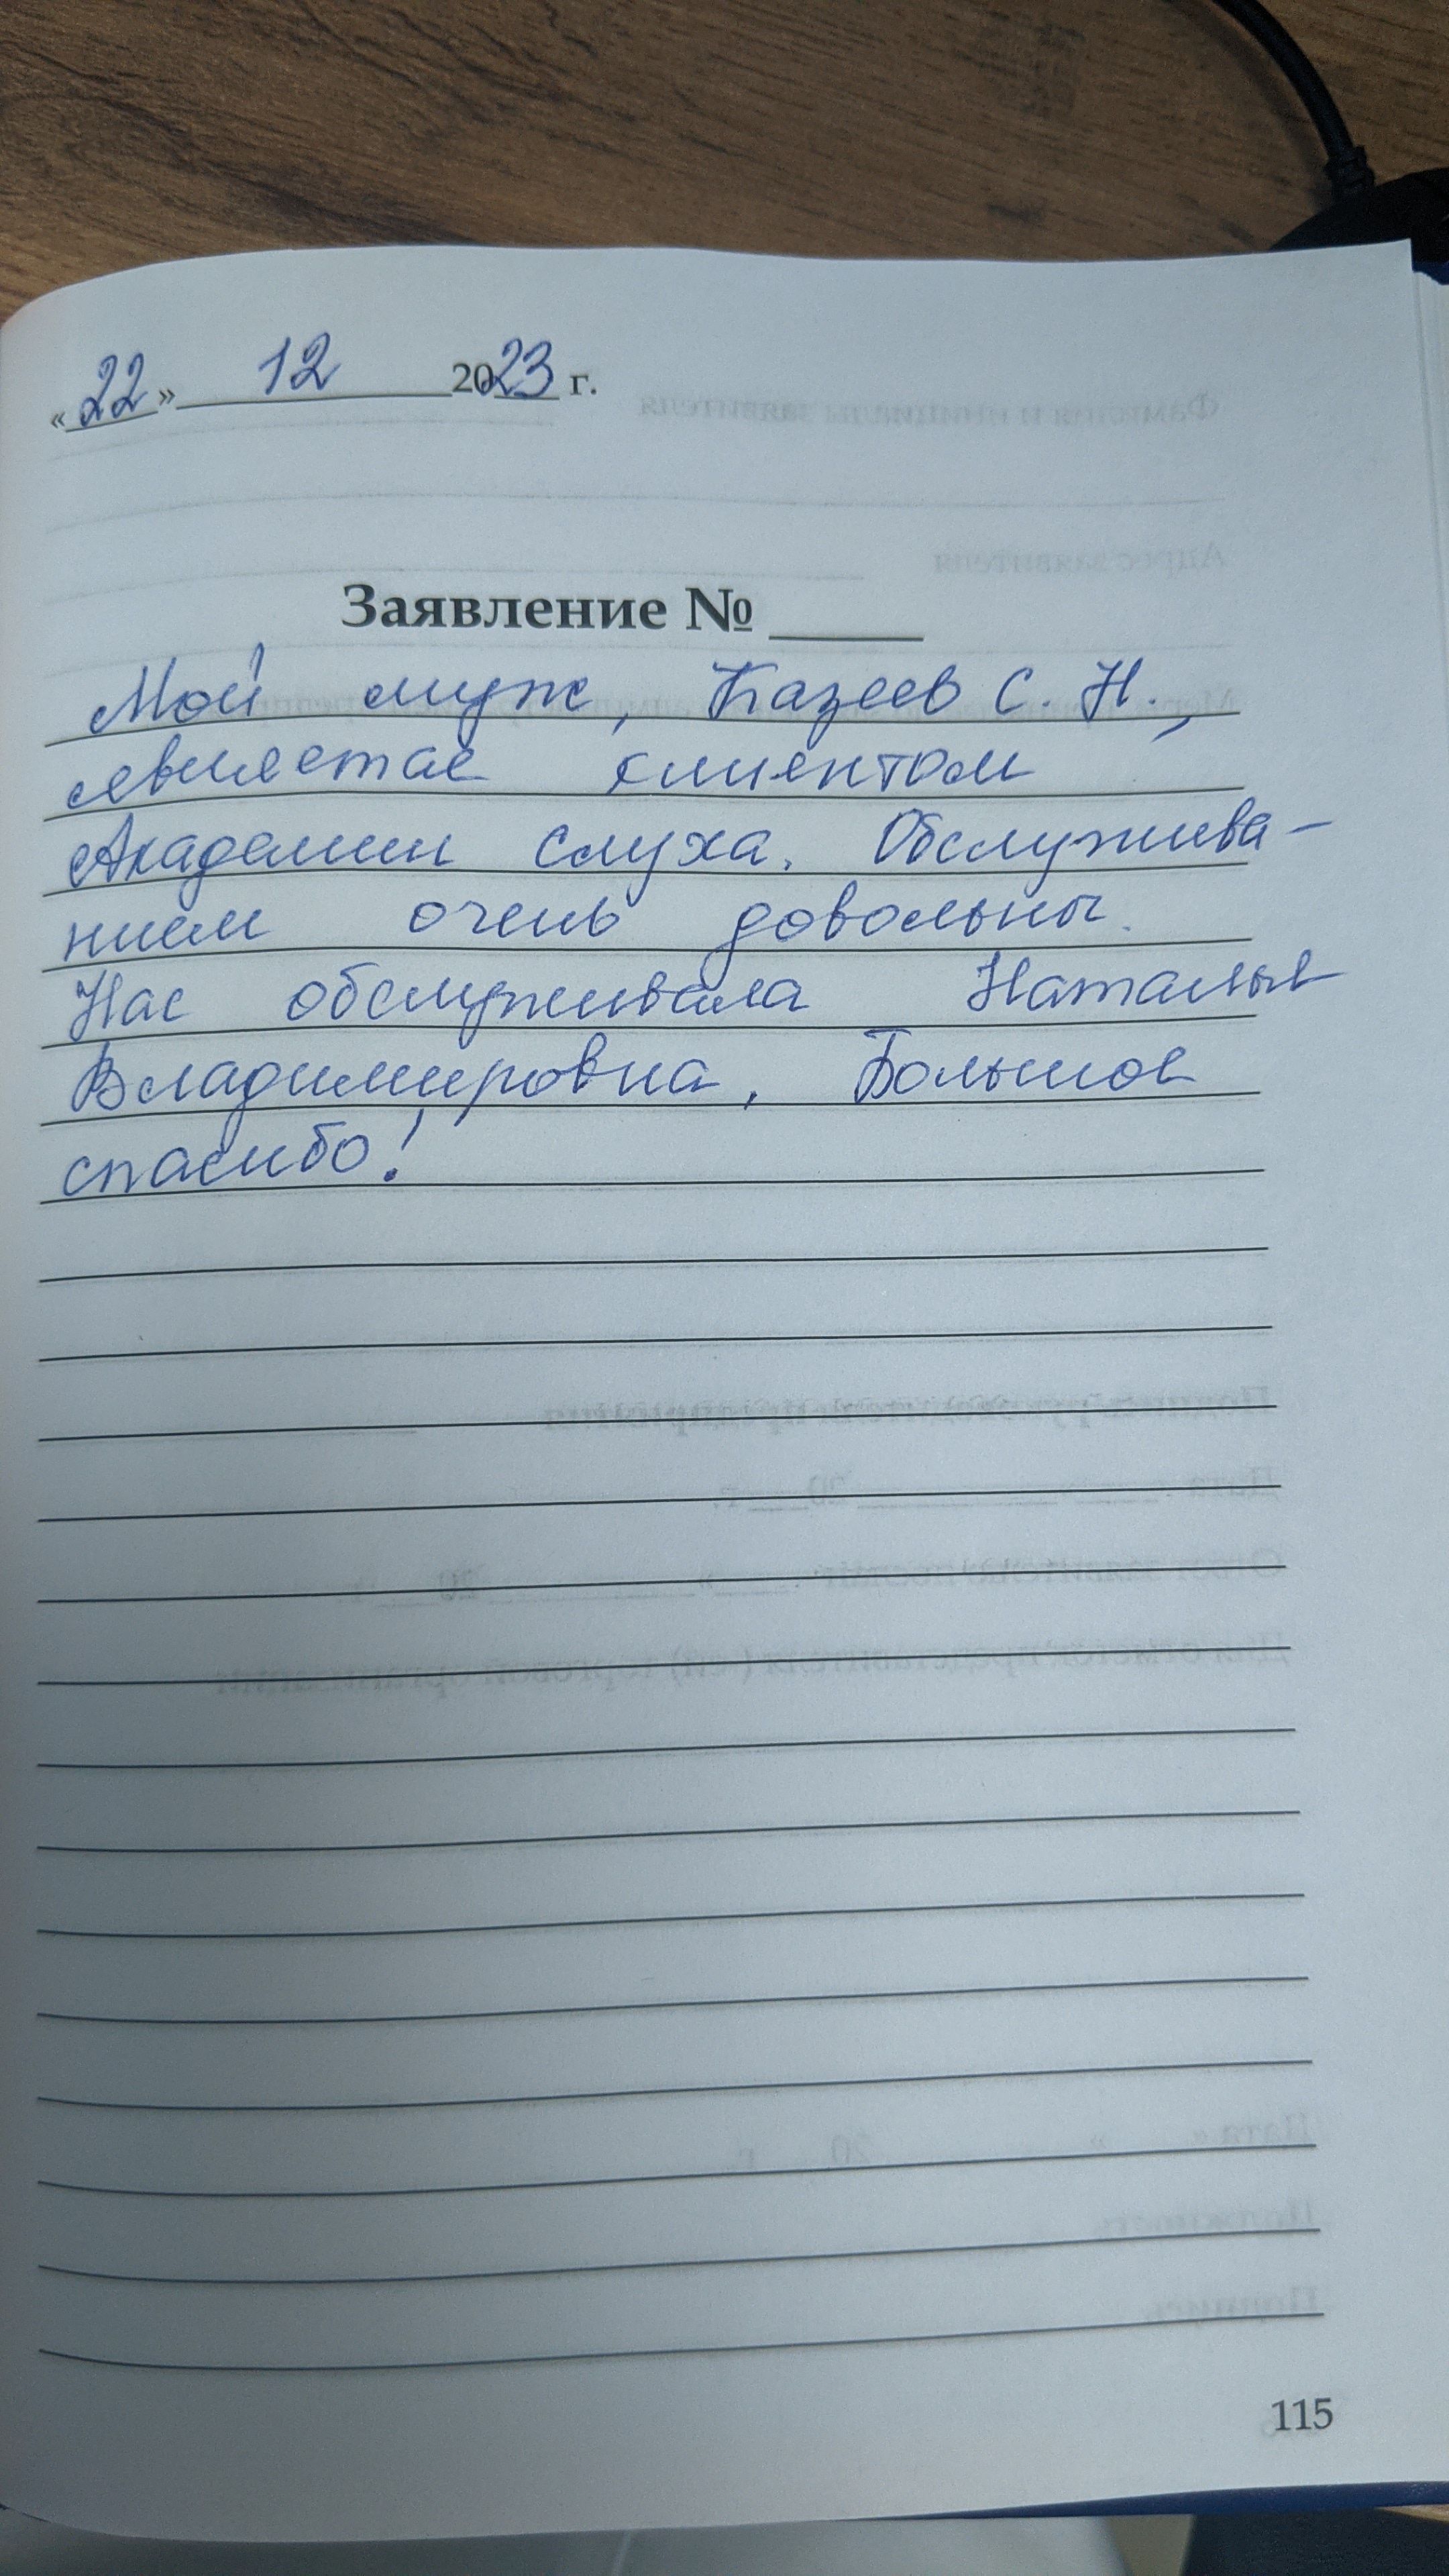 «22» 12 2023 г.
Заявление № ____
Мой муж, Казеев С. Н.,
является клиентом
Академии слуха. Обслужива-
нием очень довольны.
Нас обслуживала Наталья
Владимировна. Большое
спасибо!
115